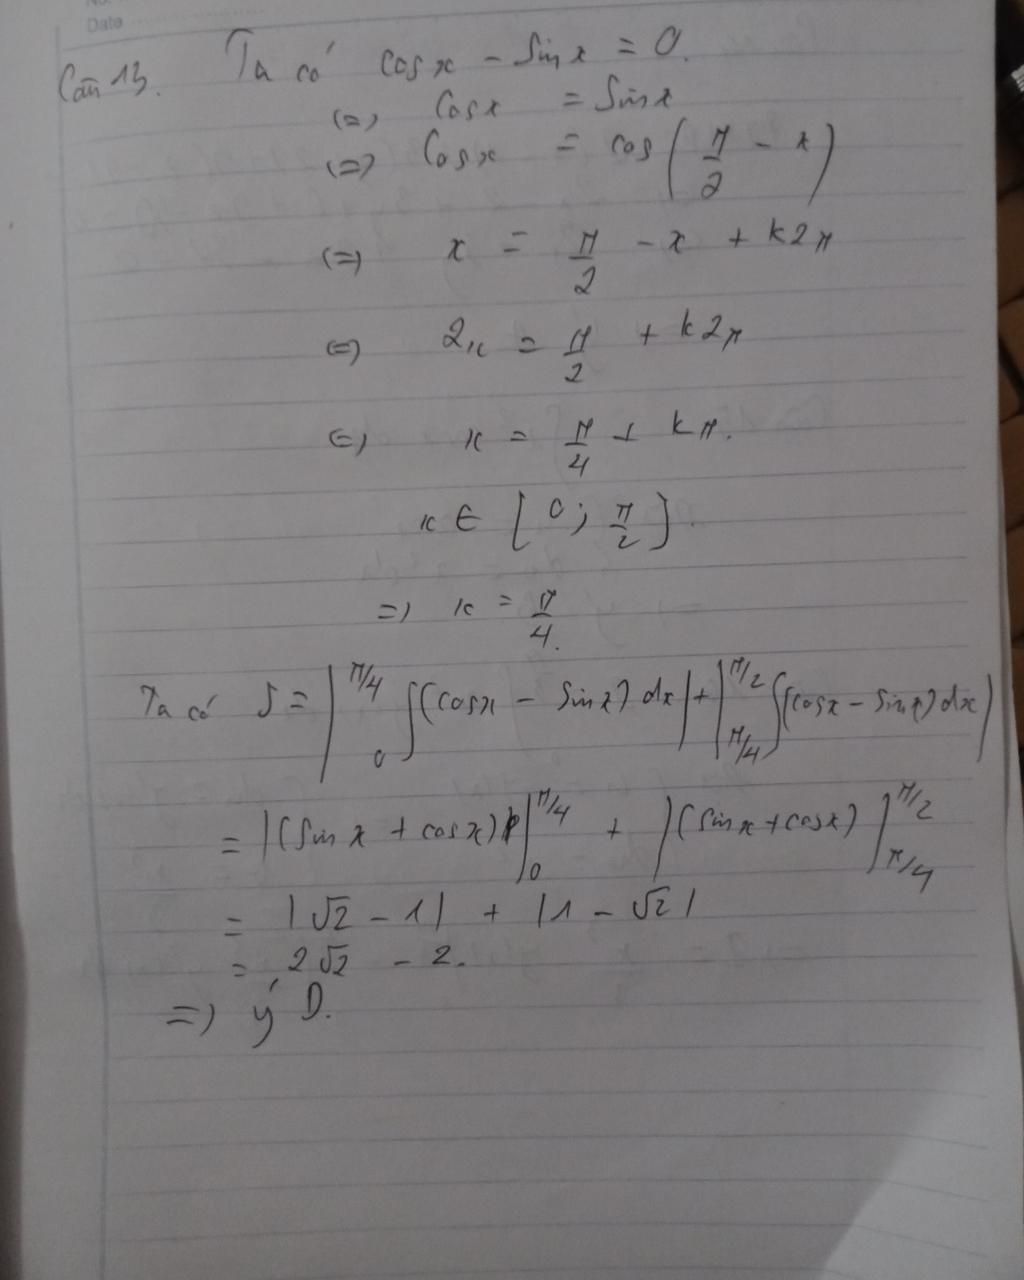 No.
Date
Câu 13. Ta có cosx - sinx = 0.
(=) cosx = sinx
(=) cosx = cos(π/2 - x)
(=) x = π/2 - x + k2π
(=) 2x = π/2 + k2π
(=) x = π/4 + kπ.
x ∈ [0; π/2].
=) x = π/4.
Ta có S = |π/4 0 ∫(cosx - sinx) dx| + |π/2 π/4 ∫(cosx - sinx) dx|
= |(sinx + cosx)|π/4 0 + |(sinx + cosx)|π/2 π/4
= |√2 - 1| + |1 - √2|
= 2√2 - 2.
=) ý D.